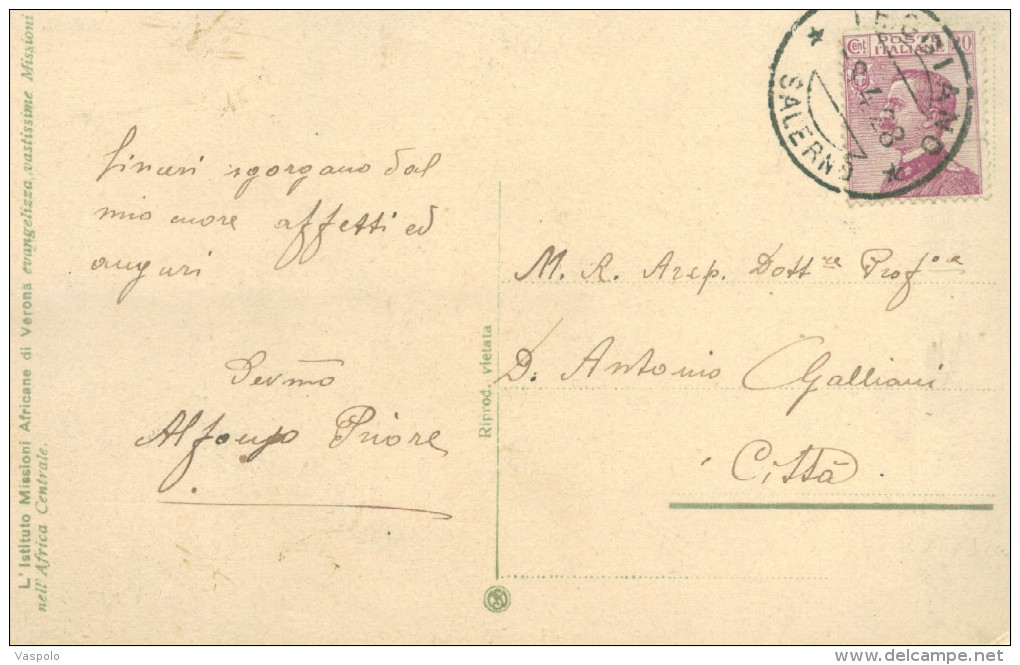 L' Istituto Missioni Africane di Verona evangelizza vastissime Missioni
nell' Africa Centrale.
Sinceri sgorgano dal
mio cuore affetti ed
auguri
Devmo
Alfonso Priore
Riprod. vietata
TEGGIANO
SALERNO
Cent. 20
POSTE
ITALIANE
M. R. Arcp. Dottre Profore
D. Antonio Galliani
Città
Vaspolo
delcampe.net